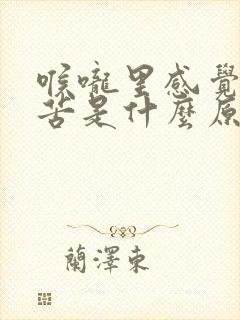 喉嚨里感覺
苦是什麼原
蘭澤東